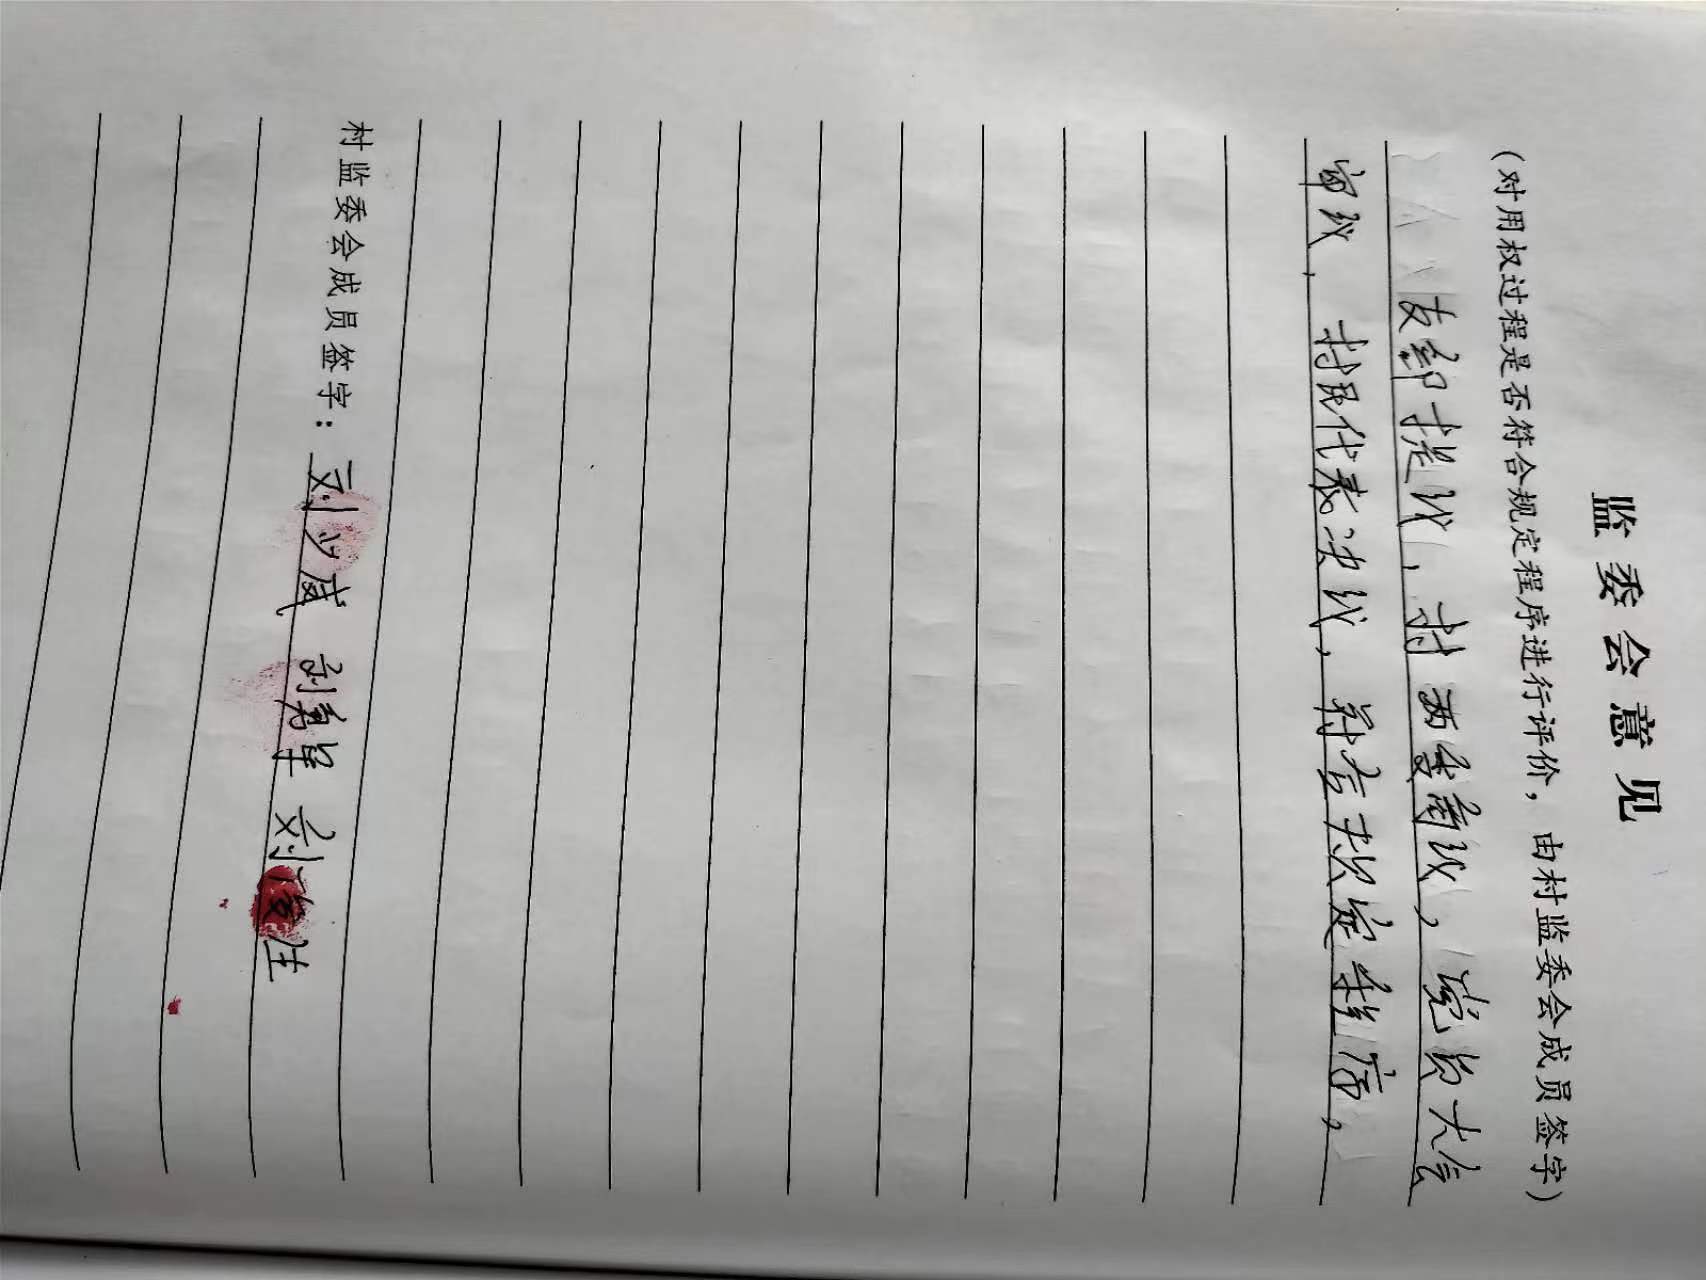 监委会意见
(对用权过程是否符合规定程序进行评价，由村监委会成员签字)
支部提议，村两委商议，党员大会
审议，村民代表决议，符合规定程序，
村监委会成员签字：刘少威 刘勇军 刘俊生